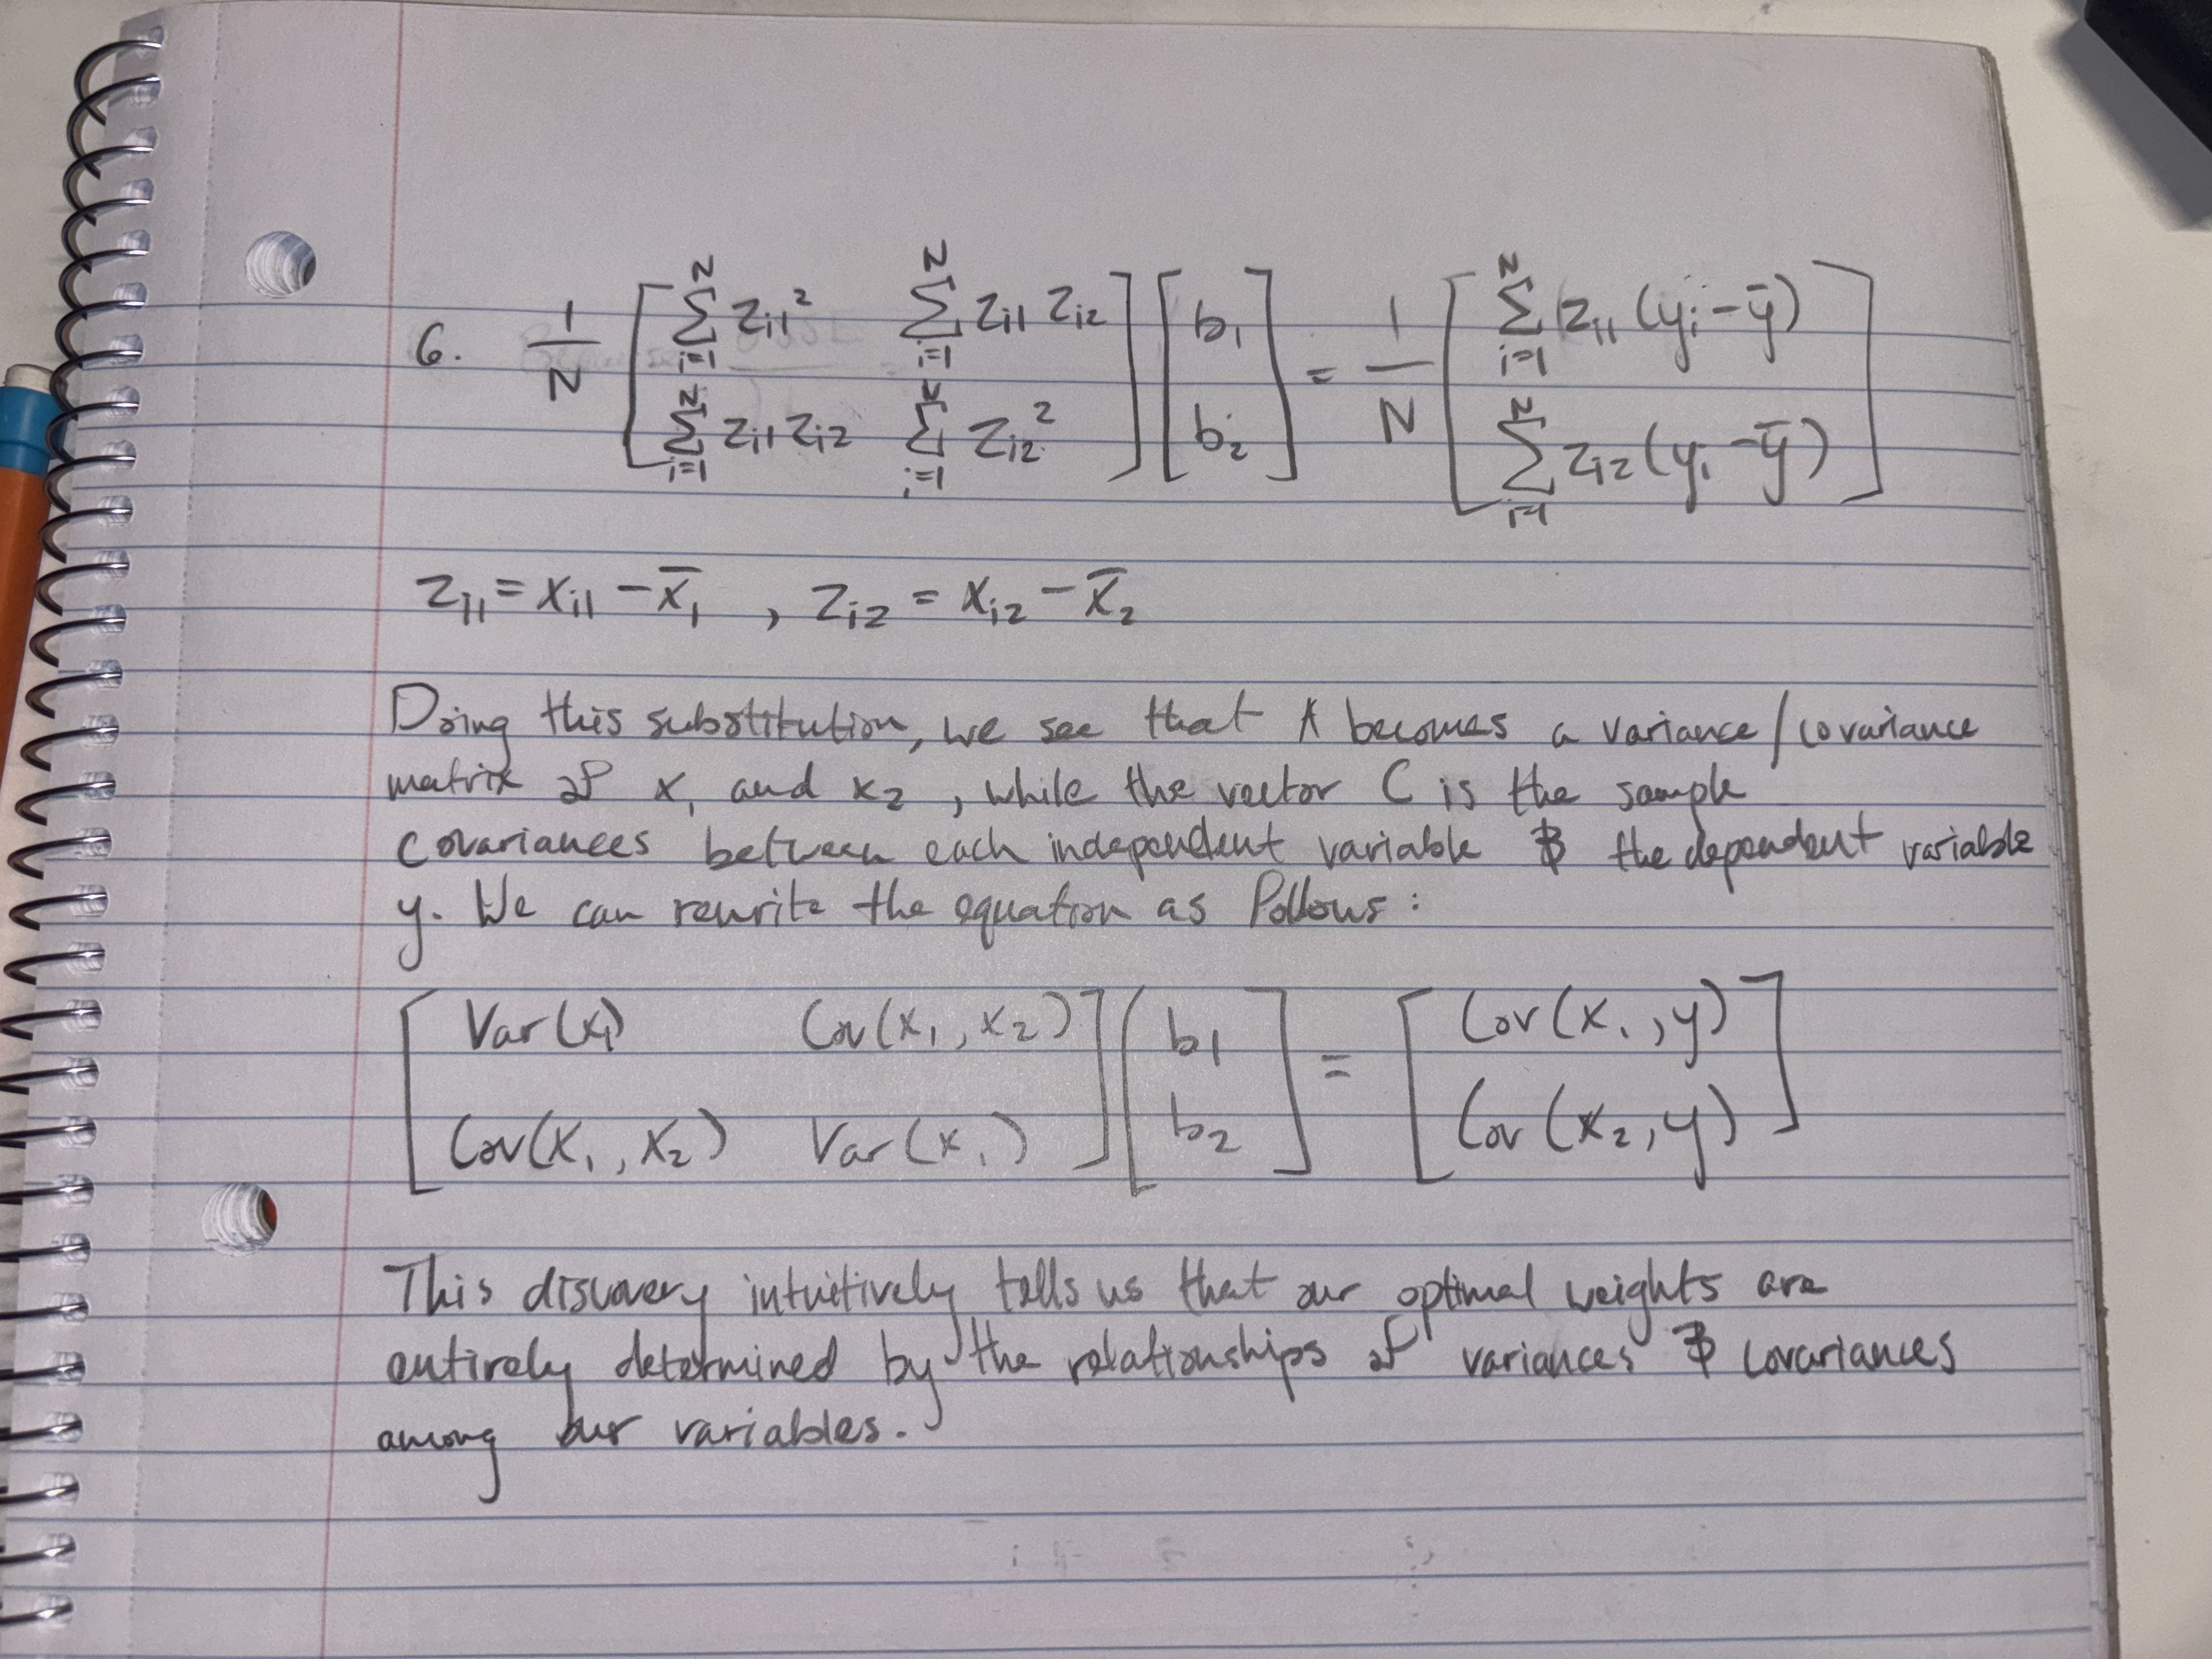 6. 1/N [ Σ_{i=1}^{N} z_{i1}²   Σ_{i=1}^{N} z_{i1} z_{i2} ; Σ_{i=1}^{N} z_{i1} z_{i2}   Σ_{i=1}^{N} z_{i2}² ] [ b₁ ; b₂ ] = 1/N [ Σ_{i=1}^{N} z_{i1} (y_i - ȳ) ; Σ_{i=1}^{N} z_{i2} (y_i - ȳ) ]
z_{i1} = x_{i1} - x̄₁ , z_{i2} = x_{i2} - x̄₂
Doing this substitution, we see that A becomes a variance/covariance
matrix of x₁ and x₂, while the vector C is the sample
covariances between each independent variable & the dependent variable
y. We can rewrite the equation as follows:
[ Var(x₁)   Cov(x₁, x₂) ; Cov(x₁, x₂)   Var(x₁) ] [ b₁ ; b₂ ] = [ Cov(x₁, y) ; Cov(x₂, y) ]
This discovery intuitively tells us that our optimal weights are
entirely determined by the relationships of variances & covariances
among our variables.